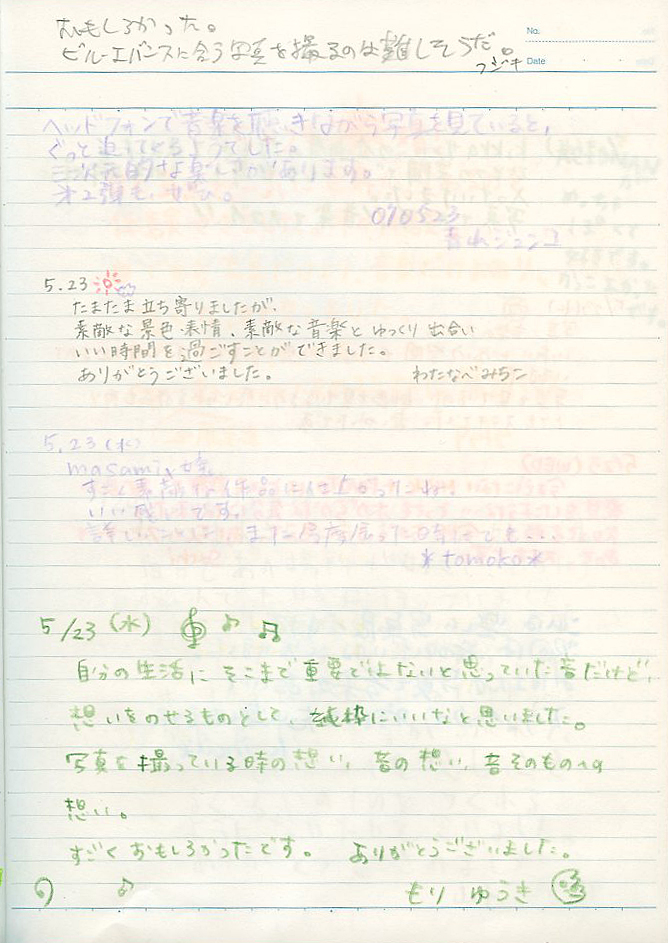 おもしろかった。
ビル・エバンスに合う写真を撮るのは難しそうだ。
フジキ
No.
Date
ヘッドフォンで音楽を聴きながら写真を見ていると、
ぐっと迫ってくるようでした。
三次元的な楽しさがあります。
第2弾も、ぜひ。
070523
青山ジュンコ
5.23
たまたま立ち寄りましたが、
素敵な景色・表情、素敵な音楽とゆっくり出合い
いい時間を過ごすことができました。
ありがとうございました。 わたなべみちこ
5.23(水)
masami嬢
すごく素敵な作品に仕上ったね!
いい感じです。
詳しいことは、また 戻った時にでも...
*tomoko*
5/23(水)
自分の生活にそこまで重要ではないと思っていた音だけど、
想いをのせるものとして、純粋にいいなと思いました。
写真を撮っている時の想い、音の想い、音そのものへの
想い。
すごくおもしろかったです。 ありがとうございました。
もり ゆうき